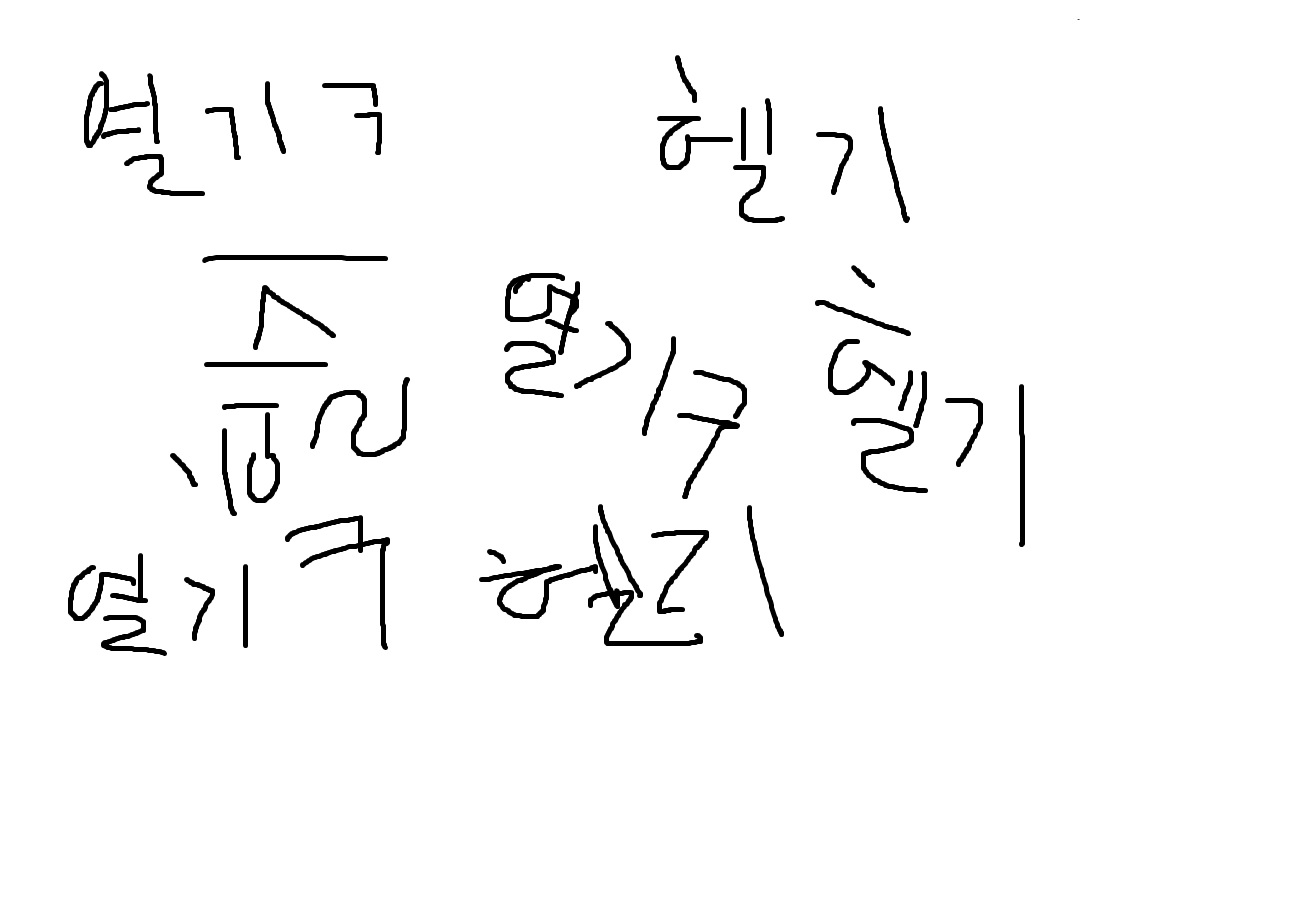 열기구 헬기
열기구 헬기
열기구 헬기